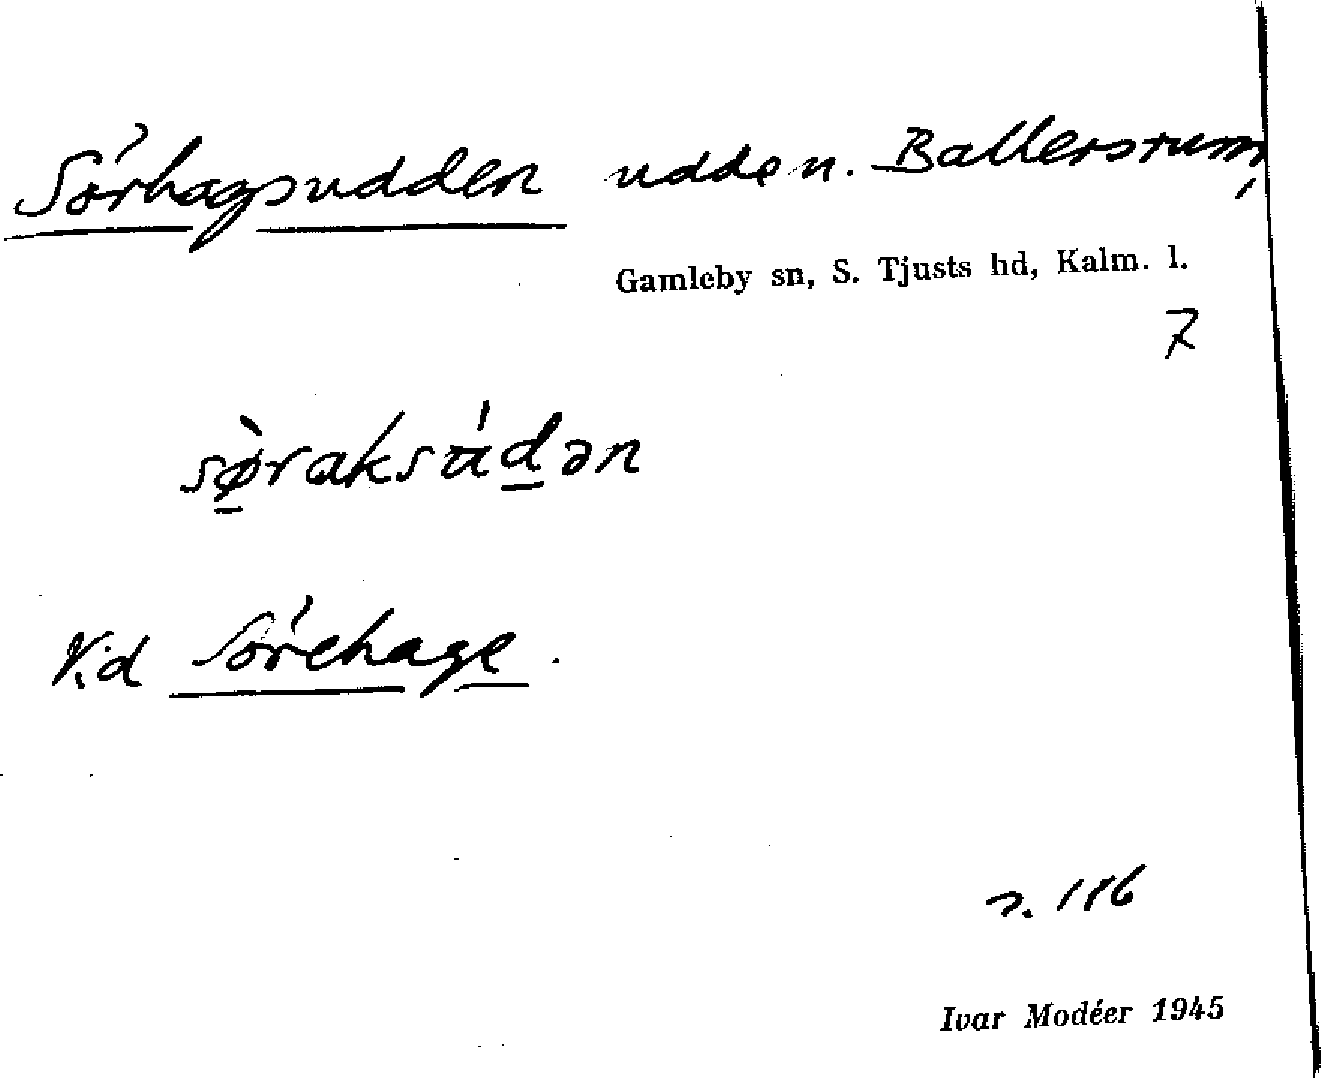 Sörhagsudden udde n. Ballersrum,
Gamleby sn, S. Tjusts hd, Kalm. l.
7
sø̀raksúdən
Vid Sörehage.
s. 186
Ivar Modéer 1945